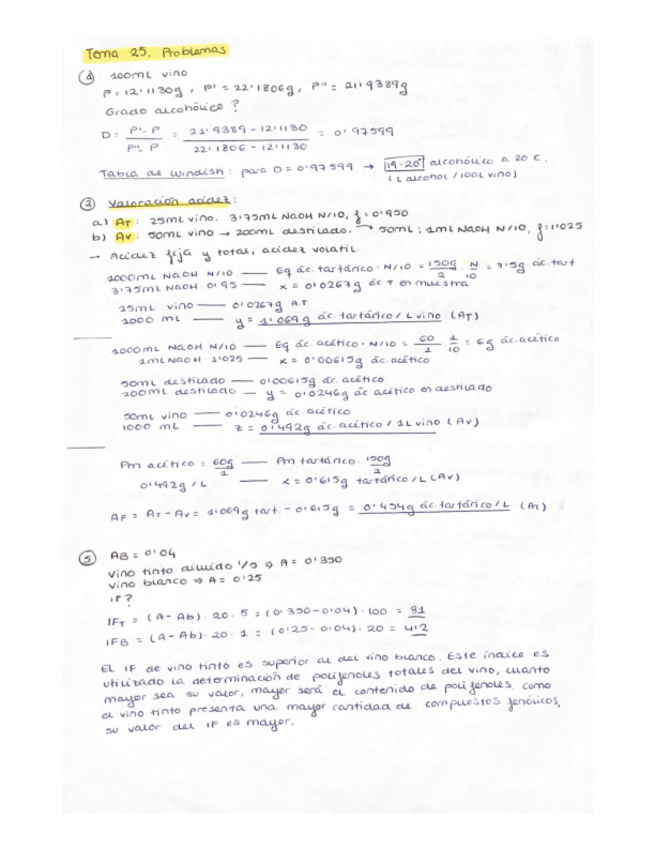 Tema 25. Problemas
① 100mL vino
P = 12'1130g , P' = 22'1806g , P'' = 21'9389g
Grado alcohólico ?
D = P'-P / P''-P = 21'9389 - 12'1130 / 22'1806 - 12'1130 = 0'97599
Tabla de Windish : para D = 0'97599 → 19'20° alcohólico a 20 C.
(L alcohol / 100L vino)
② Valoración acidez :
a) AT : 25mL vino. 3'75mL NaOH N/10, f = 0'950
b) Av : 50mL vino → 200mL destilado. → 50mL : 1mL NaOH N/10, f = 1'025
→ Acidez fija y total, acidez volátil.
1000mL NaOH N/10 — Eq ác. tartárico · N/10 = 150g / 2 · N / 10 = 7'5g ác. tart
3'75mL NaOH 0'95 — x = 0'0267g ác T en muestra
25mL vino — 0'0267g A.T
1000 mL — y = 1'069g ác. tartárico / L vino (AT)
1000mL NaOH N/10 — Eq ác. acético · N/10 = 60 / 1 · 1 / 10 = 6g ác. acético
1mL NaOH · 1'025 — x = 0'00615g ác. acético
50mL destilado — 0'00615g ác. acético
200mL destilado — y = 0'0246g ác acético en destilado
50mL vino — 0'0246g ác. acético
1000 mL — z = 0'492g ác. acético / 1L vino (Av)
Pm acético = 60g / 1 — Pm tartárico · 150g / 2
0'492g / L — x = 0'615g tartárico / L (Av)
AF = AT - Av = 1'069g tart. - 0'615g = 0'454g ác. tartárico / L
⑤ AB = 0'04
Vino tinto diluido 1/5 ⇒ A = 0'850
Vino blanco ⇒ A = 0'25
IF ?
IFT = (A - Ab) · 20 · 5 = (0'850 - 0'04) · 100 = 81
IFB = (A - Ab) · 20 · 1 = (0'25 - 0'04) · 20 = 4'2
El IF de vino tinto es superior al del vino blanco. Este índice es
utilizado la determinación de polifenoles totales del vino, cuanto
mayor sea su valor, mayor será el contenido de polifenoles. como
el vino tinto presenta una mayor cantidad de compuestos fenólicos,
su valor del IF es mayor.